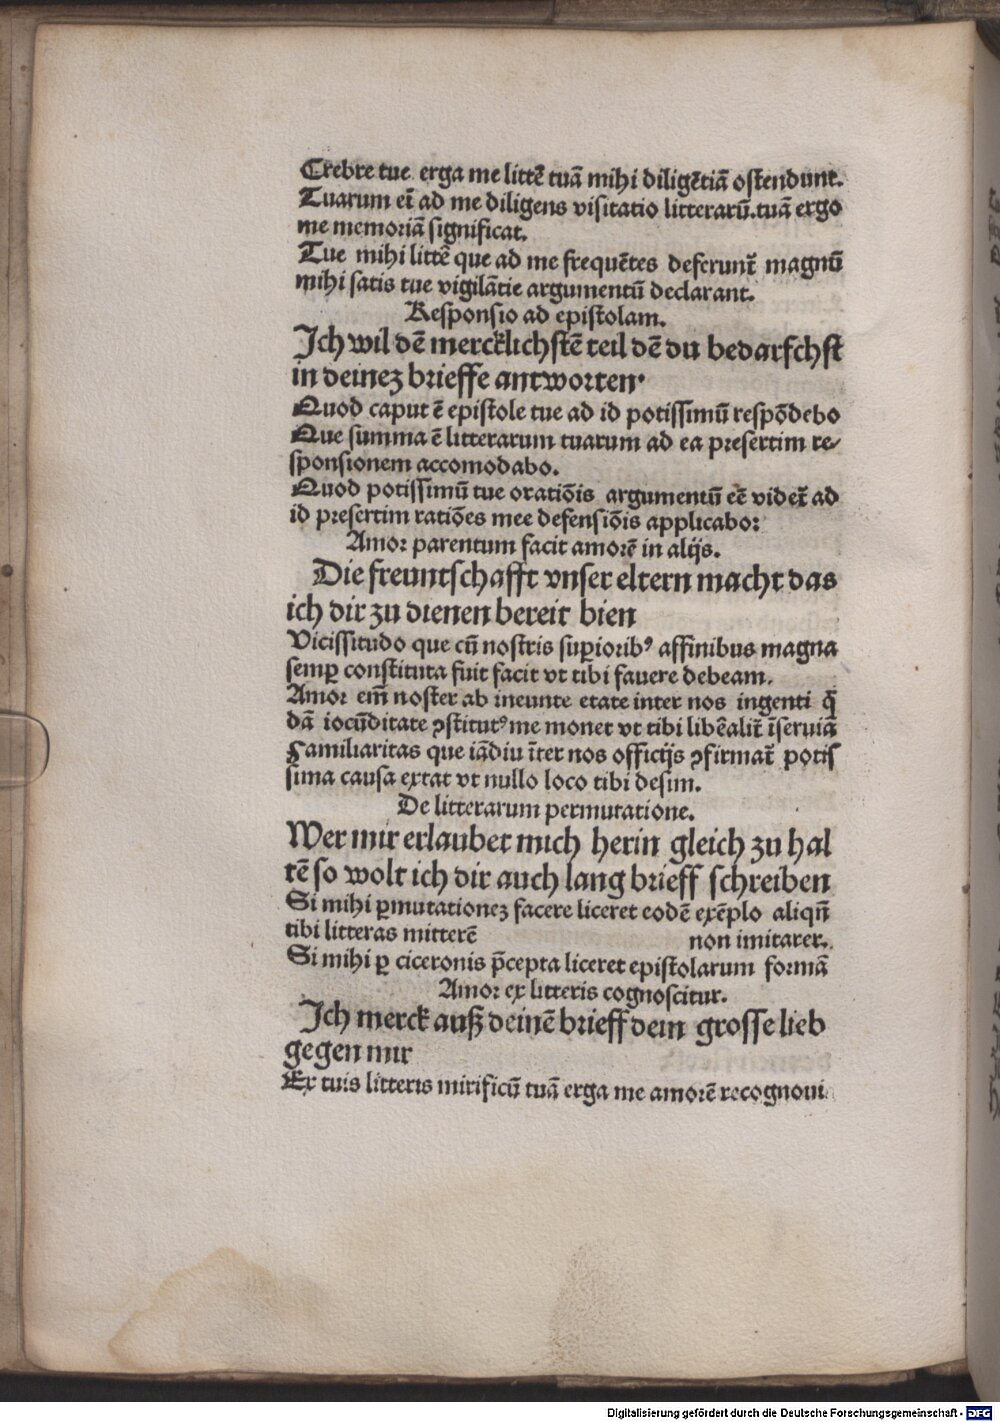 Crebre tue erga me litte᷒ tuā mihi diligētiā ostendunt.
Tuarum eī ad me diligens visitatio litterarū.tuā ergo
me memoriā significat.
Tue mihi litte᷒ que ad me frequētes deferunt᷑ magnū
mihi satis tue vigilātie argumentū declarant.
Responsio ad epistolam.
Ich wil dē mercklichstē teil dē du bedarfchst
in deinez brieffe antworten·
Quod caput ē epistole tue ad id potissimū respōdebo
Que summa ē litterarum tuarum ad ea presertim re⸗
sponsionem accomodabo.
Quod potissimū tue oratiōis argumentū eē videt᷑ ad
id presertim ratiōes mee defensiōis applicabo:
Amor parentum facit amorē in alijs.
Die freuntschafft vnser eltern macht das
ich dir zu dienen bereit bien
Vicissitudo que cū nostris suꝑioribꝰ affinibus magna
semꝑ constituta fuit facit vt tibi fauere debeam.
Amor em̄ noster ab ineunte etate inter nos ingenti q̄
dā iocūditate ꝯstitutꝰ me monet vt tibi libēalit᷑ īseruiā
Familiaritas que iādiu īter nos officijs ꝯfirmat᷑ potis
sima causa extat vt nullo loco tibi desim.
De litterarum permutatione.
Wer mir erlaubet mich herin gleich zu hal
tē so wolt ich dir auch lang brieff schreiben
Si mihi ꝑmutationez facere liceret eodē exēplo aliqn̄
tibi litteras mitterē non imitarer.
Si mihi ꝑ ciceronis p̄cepta liceret epistolarum formā
Amor ex litteris cognoscitur.
Ich merck auß deinē brieff dein grosse lieb
gegen mir
Ex tuis litteris mirificū tuā erga me amorē recognoui
Digitalisierung gefördert durch die Deutsche Forschungsgemeinschaft - DFG